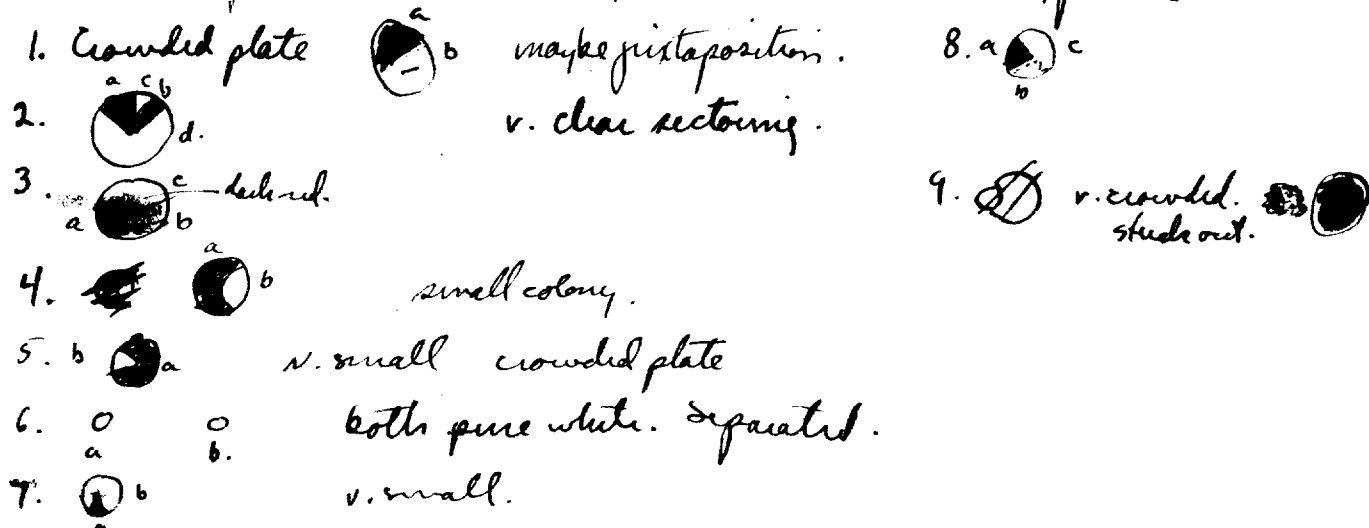 1. Crowded plate a b maybe juxtaposition.
2. a c b d. v. clear sectoring.
3. a c b dark red.
4. a b small colony.
5. b a v. small crowded plate
6. a b. both pure white. Separated.
7. b a v. small.
8. a c b
9. v. crowded.
stuck out.